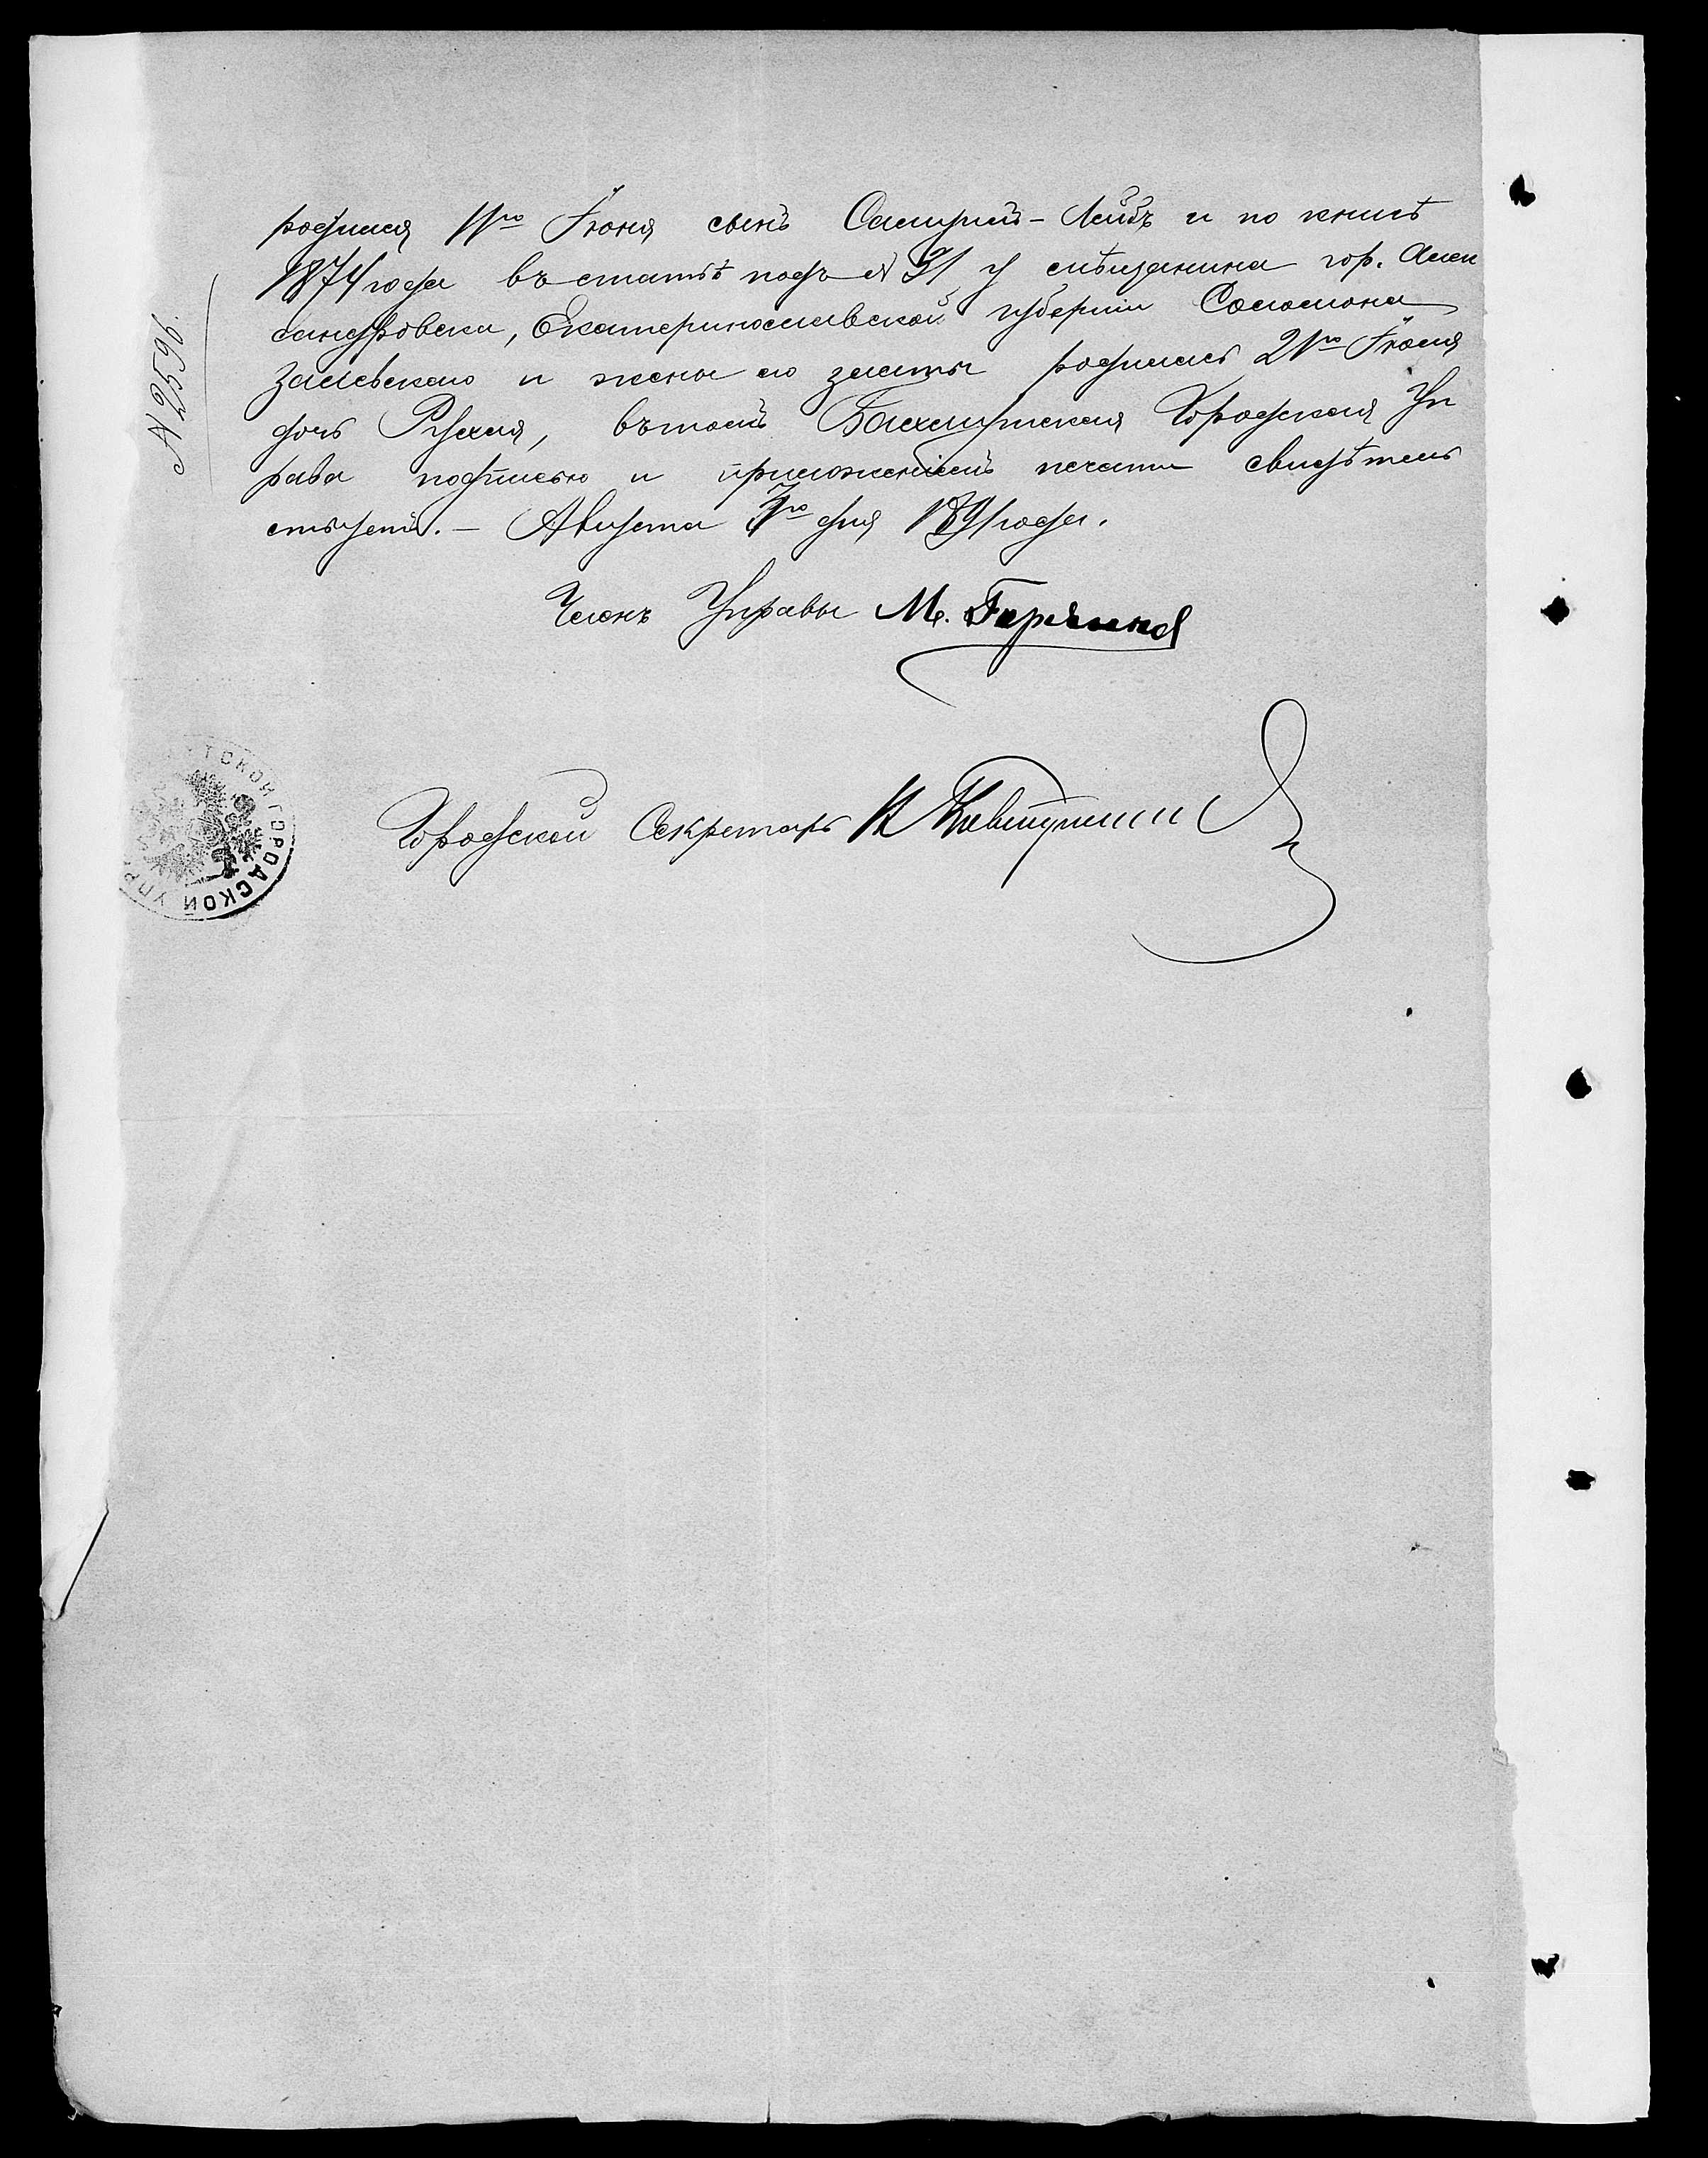 родился 11го Іюня сынъ Самуилъ-Лейбъ и по книгѣ
1874 года въ статьѣ подъ № 31 у мѣщанина гор. Алек
сандровска, Екатеринославской губерніи Соломона
Залевскаго и жены его Златы родилась 21го Іюля
дочь Рухля, въ томъ Бахмутская Городская Уп
рава подписью и приложеніемъ печати свидѣтель
ствуетъ. - Августа 7го дня 1891 года.
Членъ Управы М.
Городской Секретарь
№ 2596.
ТСКОЙ ГОРОДСКОЙ УПР